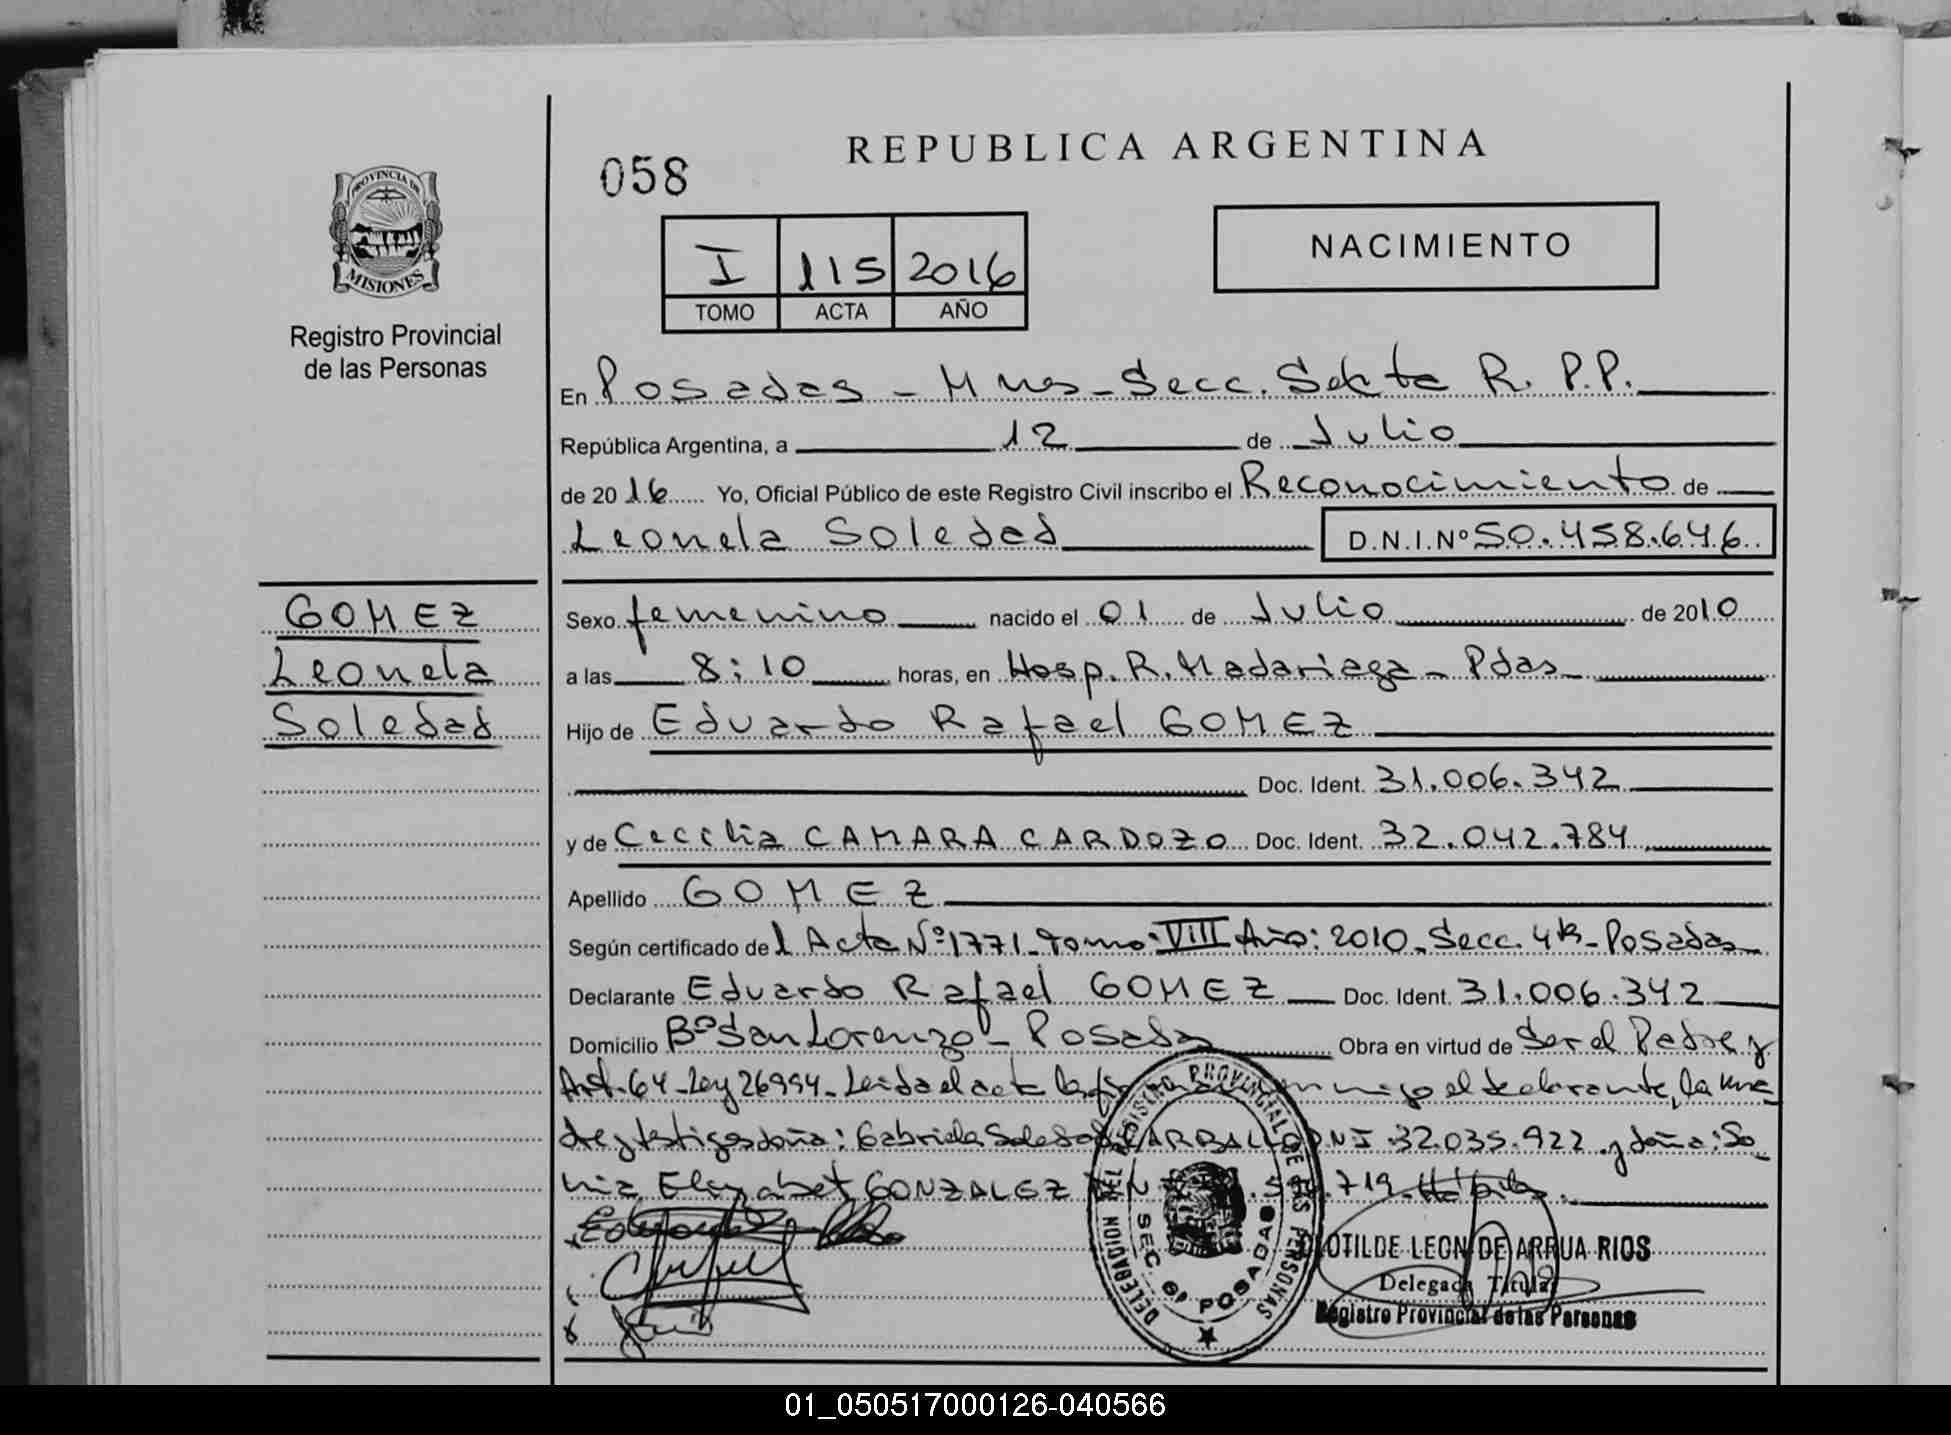 REPUBLICA ARGENTINA
058
PROVINCIA DE
MISIONES
Registro Provincial
de las Personas
I 115 2016
TOMO ACTA AÑO
NACIMIENTO
En Posadas - Mnes - Secc. Sexta R. P.P.
República Argentina, a 12 de Julio
de 2016 Yo, Oficial Público de este Registro Civil inscribo el Reconocimiento de
Leonela Soledad D.N.I.Nº 50.458.646
GOMEZ
Leonela
Soledad
Sexo femenino nacido el 01 de Julio de 2010
a las 8:10 horas, en Hosp. R. Madariaga - Pdas
Hijo de Eduardo Rafael GOMEZ
Doc. Ident. 31.006.342
y de Cecilia CAMARA CARDOZO Doc. Ident. 32.042.784
Apellido GOMEZ
Según certificado de l Acta Nº 1771 - Tomo: VIII Año: 2010 - Secc. 4ta - Posadas
Declarante Eduardo Rafael GOMEZ Doc. Ident. 31.006.342
Domicilio Bº San Lorenzo - Posadas Obra en virtud de Ser el Padre y
Art. 64 - Ley 26994 - Leida el acta la el declarante, la ma
dre y testigos doña: Gabriela Soledad CARBALLO DNI 32.035.922 y doña: So
nia Elizabet GONZALEZ 719
DELEGACION DEL REGISTRO PROVINCIAL DE LAS PERSONAS
SEC. 6ª POSADAS
CLOTILDE LEON DE ARRUA RIOS
Delegada Titular
Registro Provincial de las Personas
01_050517000126-040566